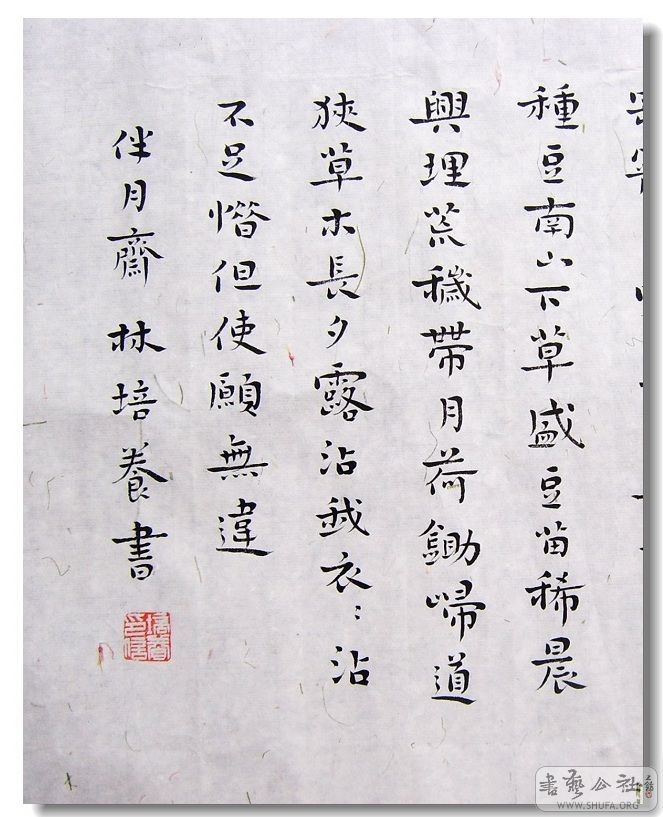 種豆南山下草盛豆苗稀晨
興理荒穢帶月荷鋤歸道
狹草木長夕露沾我衣：沾
不足惜但使願無違
伴月齋 林培養書
書藝公社
WWW.SHUFA.ORG